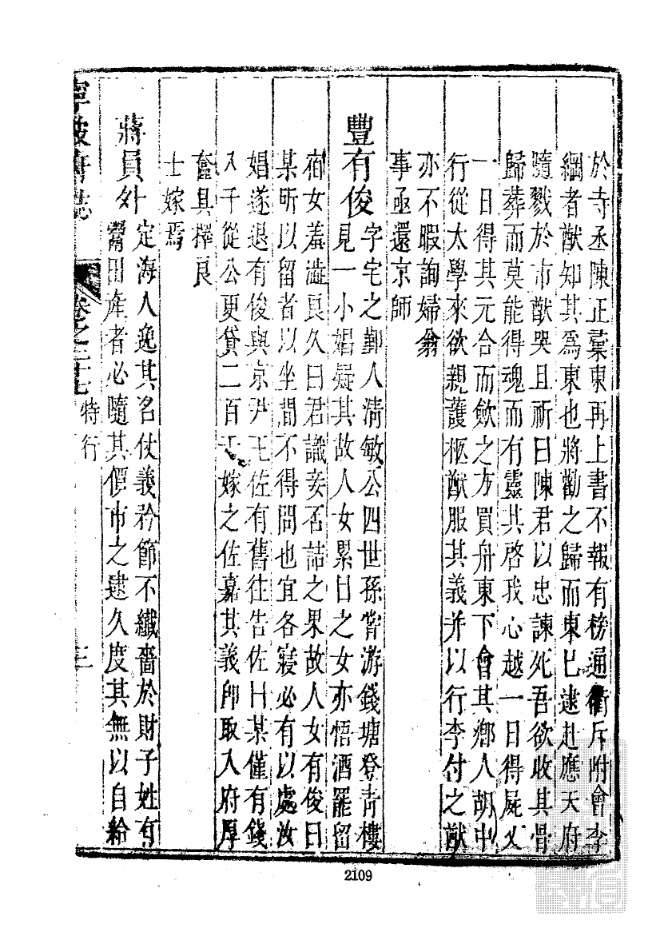 於寺丞陳正彙東再上書不報有榜通衢斥附會李
綱者猷知其爲東也將勸之歸而東已逮赴應天府
隨戮於市猷哭且祈曰陳君以忠諫死吾欲收其骨
歸葬而莫能得魂而有靈其啓我心越一日得屍又
一日得其元合而斂之方買舟東下會其鄉人胡中
行從太學來欲親護柩猷服其義并以行李付之猷
亦不暇詢婦翁
事亟還京師
豐有俊字宅之鄞人清敏公四世孫嘗游錢塘登青樓
見一小娼疑其故人女累日之女亦悟酒罷留
宿女羞澁良久曰君識妾否詰之果故人女有俊曰
某所以留者以坐間不得問也宜各寢必有以處汝
娼遂退有俊與京尹王佐有舊往告佐曰某僅有錢
八千從公更貸二百千嫁之佐嘉其義卽取入府厚
奩具擇良
士嫁焉
蔣員外定海人逸其名仗義矜節不纖嗇於財子姓有
鬻田產者必隨其價市之逮久度其無以自給
寧波府誌
卷之三十七
特行
三
2109